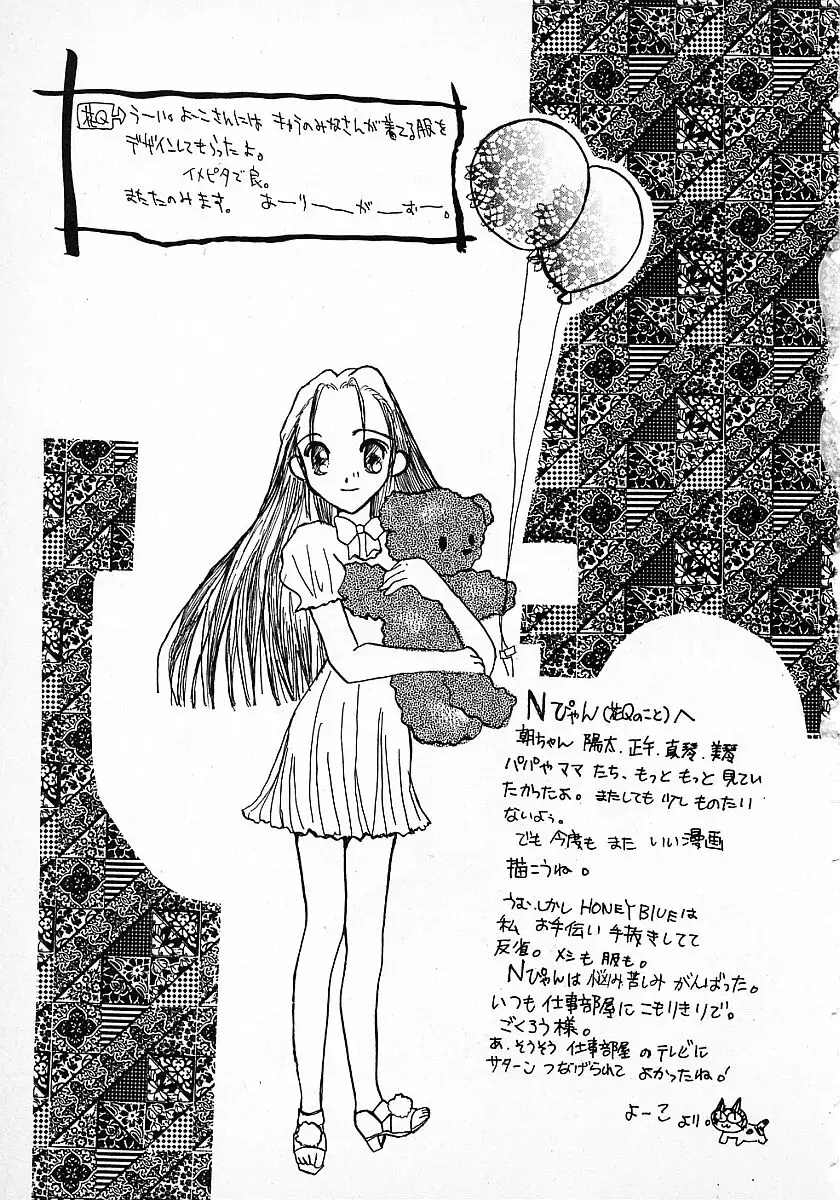 花Q→うーい。よーこさんには きゅうのみなさんが着てる服を
デザインしてもらったよ。
イメピタで良。
またたのみます。 あーりーがーむー。
Nぴゃん(花Qのこと)へ
朝ちゃん 陽太、正午、真琴、美琴
パパやママ たち、もっと もっと 見てい
たかったよ。またしても 少し ものたり
ないよぅ。
でも 今度も また いい 漫画
描こうね。
うむ、しかし HONEY BLUEは
私 お手伝い 手抜きしてて
反省。メシも 服も。
Nぴゃんは 悩み苦しみ がんばった。
いつも 仕事部屋に こもりきりで。
ごくろう様。
あ、そうそう 仕事部屋 のテレビに
サターン つなげられて よかったね!
よーこ より。